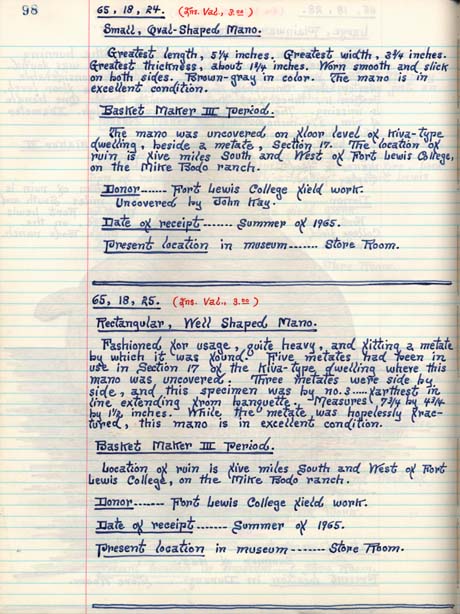 98
65, 18, 24. (Ins. Val., 3.00)
Small, Oval-Shaped Mano.
Greatest length, 5¼ inches. Greatest width, 3¾ inches.
Greatest thickness, about 1¼ inches. Worn smooth and slick
on both sides. Brown-gray in color. The mano is in
excellent condition.
Basket Maker III Period.
The mano was uncovered on floor level of Kiva-type
dwelling, beside a metate, Section 17. The location of
ruin is five miles South and West of Fort Lewis College,
on the Mike Bodo ranch.
Donor------ Fort Lewis College field work.
Uncovered by John Kay.
Date of receipt------- Summer of 1965.
Present location in museum------- Store Room.
65, 18, 25. (Ins. Val., 3.00)
Rectangular, Well Shaped Mano.
Fashioned for usage, quite heavy, and fitting a metate
by which it was found. Five metates had been in
use in Section 17 of the Kiva-type dwelling where this
mano was uncovered. Three metates were side by
side, and this specimen was by no. 3.....farthest in
line extending from banquette. Measures 7¾ by 4¾
by 1½ inches. While the metate was hopelessly frac-
tured, this mano is in excellent condition.
Basket Maker III Period.
Location of ruin is five miles South and West of Fort
Lewis College, on the Mike Bodo ranch.
Donor------- Fort Lewis College field work.
Date of receipt------- Summer of 1965.
Present location in museum------- Store Room.